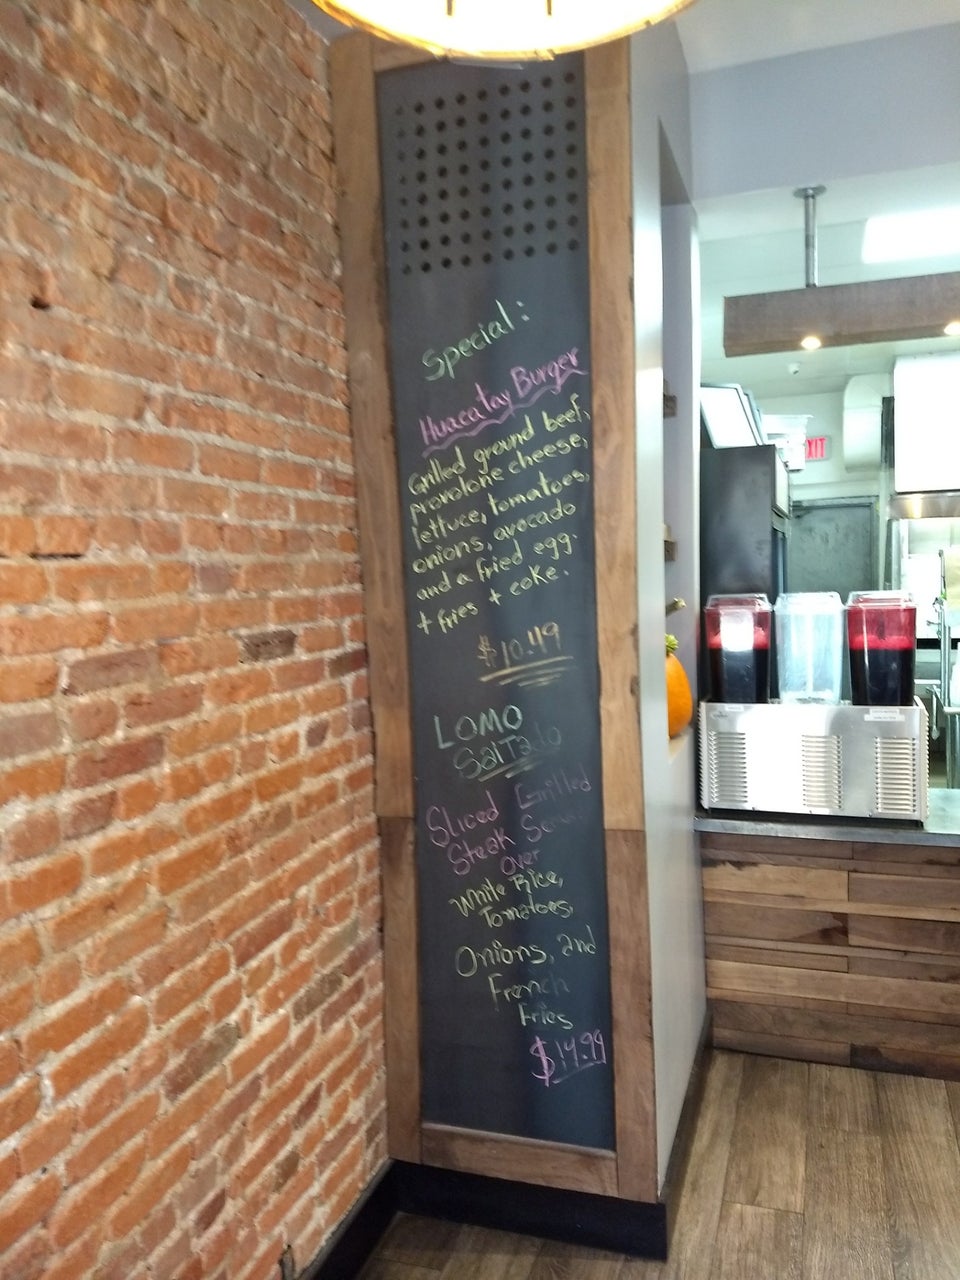 Special:
Huacatay Burger
Grilled ground beef,
provolone cheese,
lettuce, tomatoes,
onions, avocado
and a fried egg.
+ fries + coke.
$10.49
LOMO
SalTado
Sliced Grilled
Steak
Over
White Rice,
Tomatoes,
Onions, and
French
Fries
$14.99
EXIT